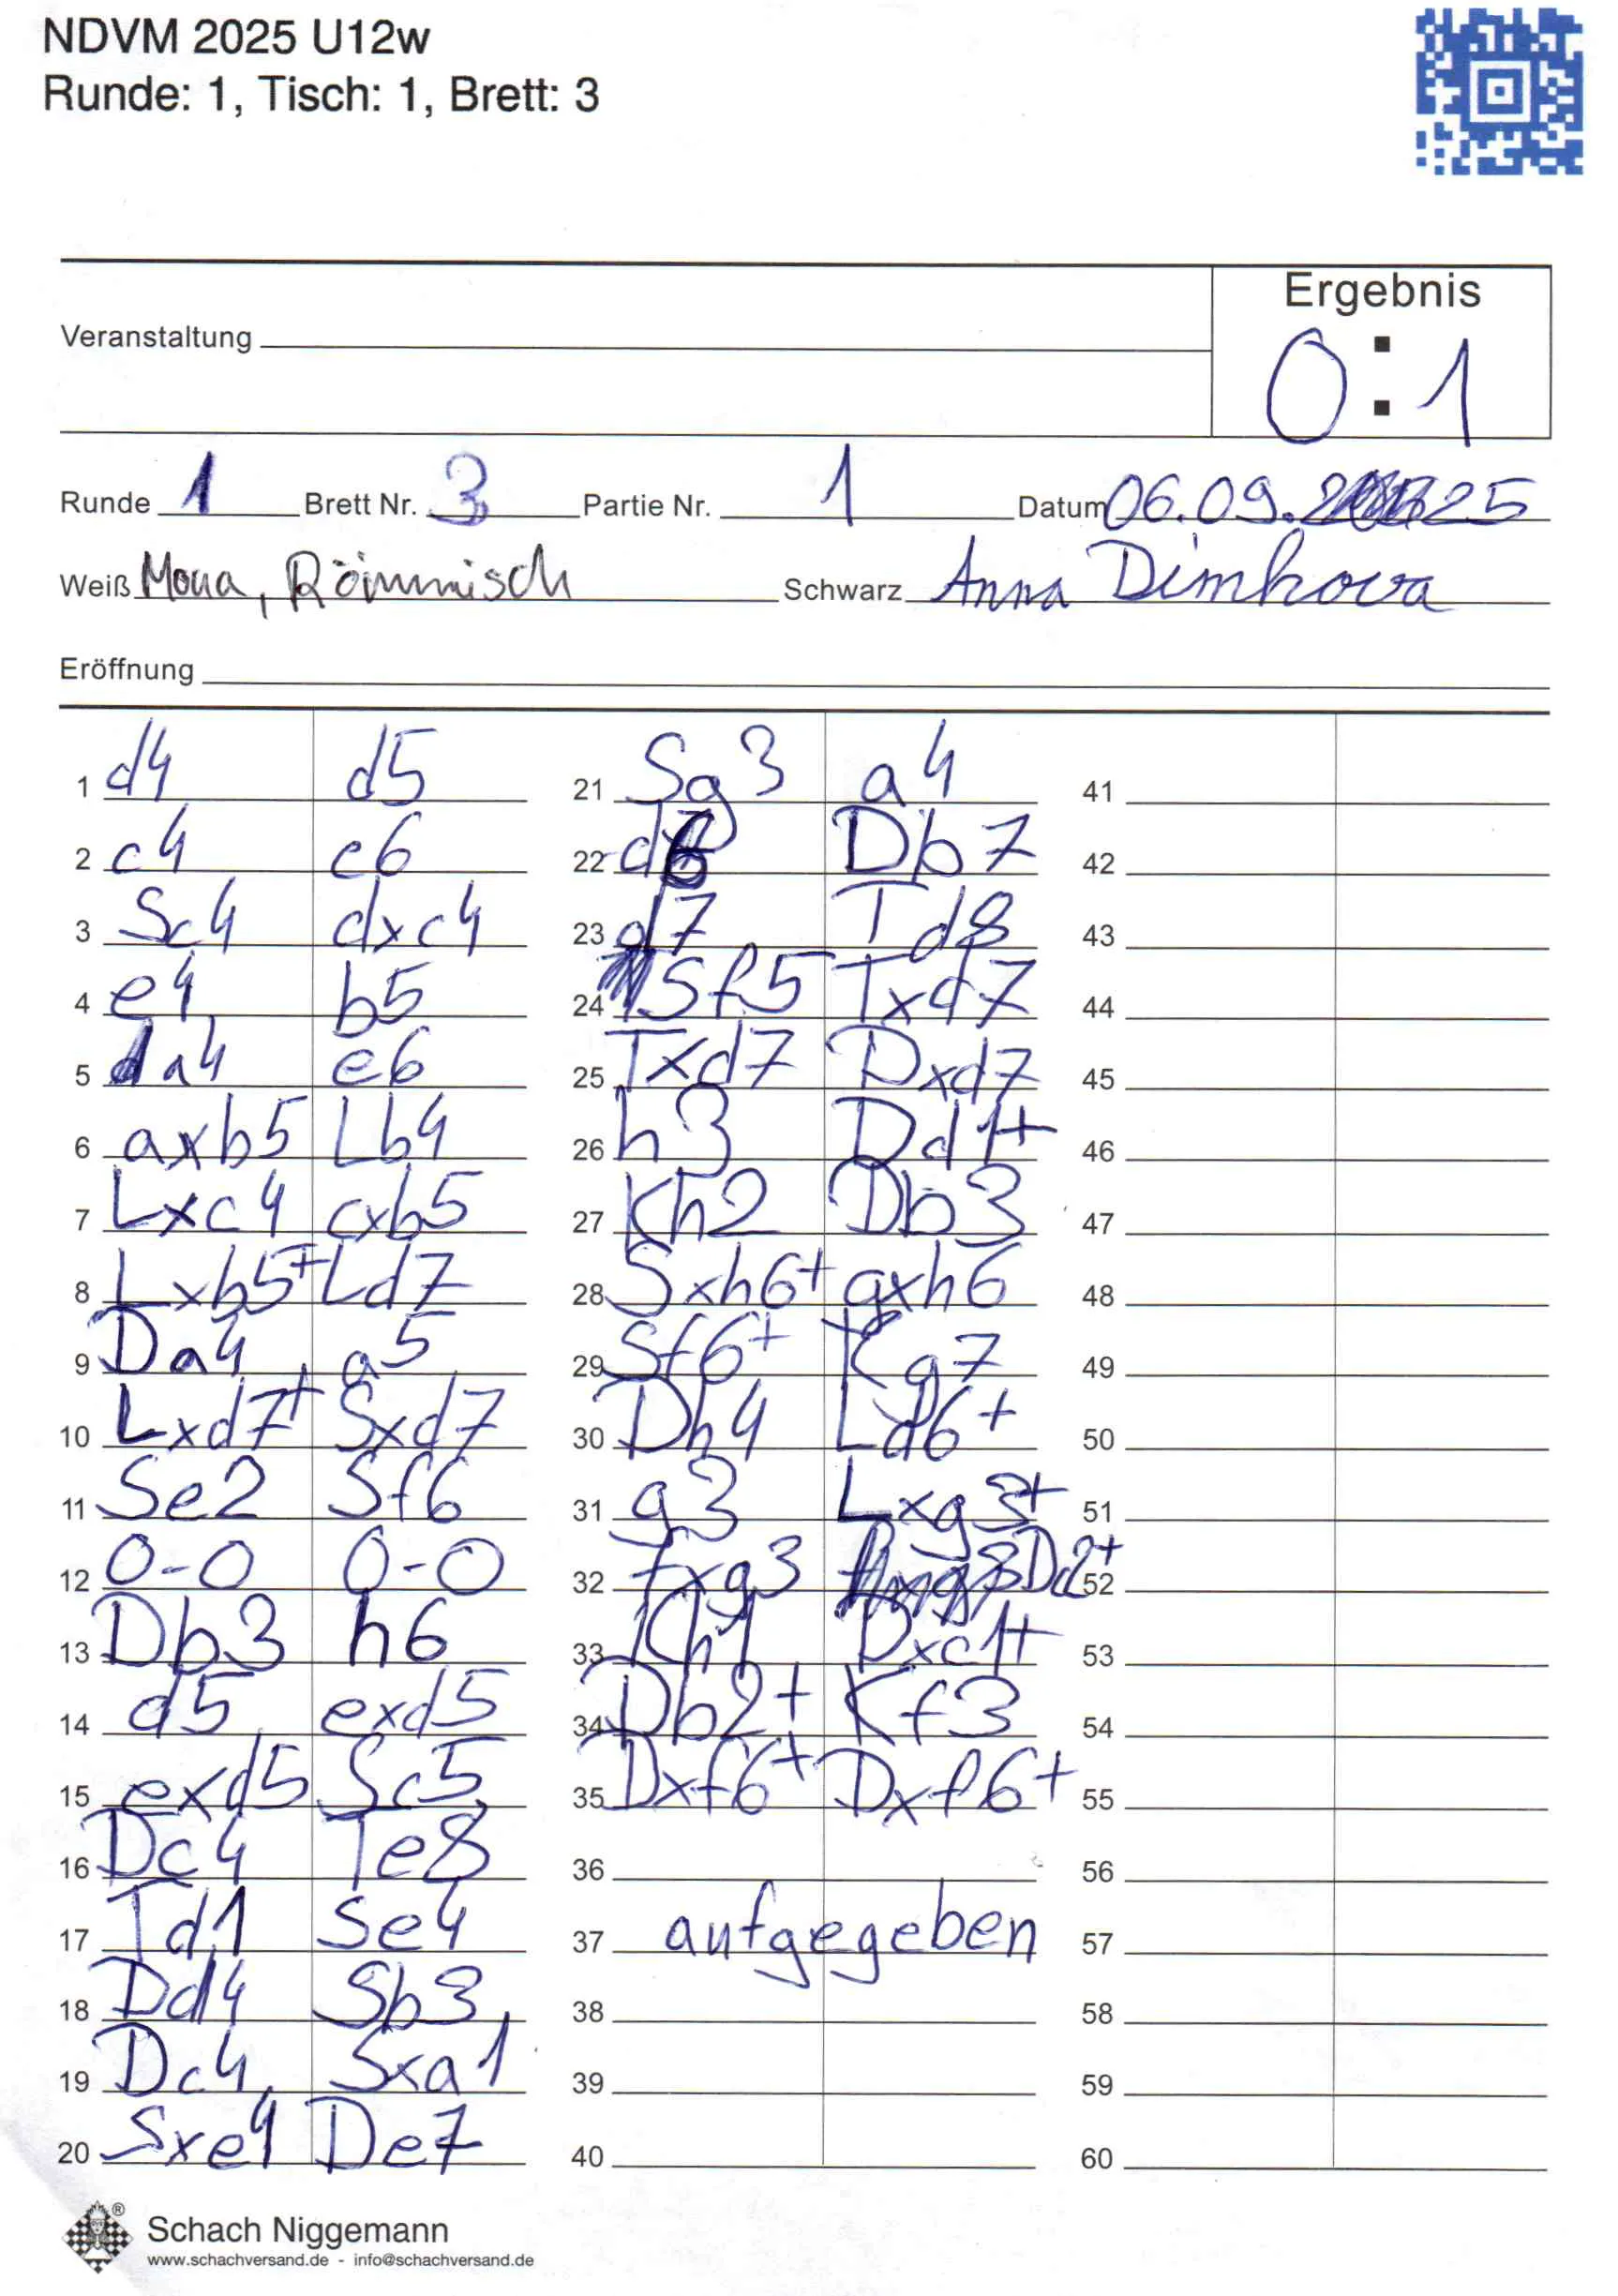 NDVM 2025 U12w
Runde: 1, Tisch: 1, Brett: 3
Ergebnis
Veranstaltung
0:1
Runde 1 Brett Nr. 3 Partie Nr. 1 Datum 06.09. 25
Weiß Mona, Römmisch Schwarz Anna Dimkova
Eröffnung
1 d4 d5
2 c4 c6
3 Sc4 dxc4
4 e4 b5
5 a4 e6
6 axb5 Lb4
7 Lxc4 cxb5
8 Lxb5+ Ld7
9 Da4 a5
10 Lxd7+ Sxd7
11 Se2 Sf6
12 0-0 0-0
13 Db3 h6
14 d5 exd5
15 exd5 Sc5
16 Dc4 Te8
17 Td1 Se4
18 Dd4 Sb3
19 Dc4 Sxa1
20 Sxe4 De7
21 Sg3 a4
22 d6 Db7
23 d7 Td8
24 Sf5 Txd7
25 Txd7 Dxd7
26 h3 Dd1+
27 Kh2 Db3
28 Sxh6+ gxh6
29 Sf6+ Kg7
30 Dh4 Ld6+
31 g3 Lxg3+
32 fxg3 Dc2+
33 Kh1 Dxc1+
34 Db2+ Kf3
35 Dxf6+ Dxf6+
36
37 aufgegeben
38
39
40
41
42
43
44
45
46
47
48
49
50
51
52
53
54
55
56
57
58
59
60
Schach Niggemann
www.schachversand.de - info@schachversand.de